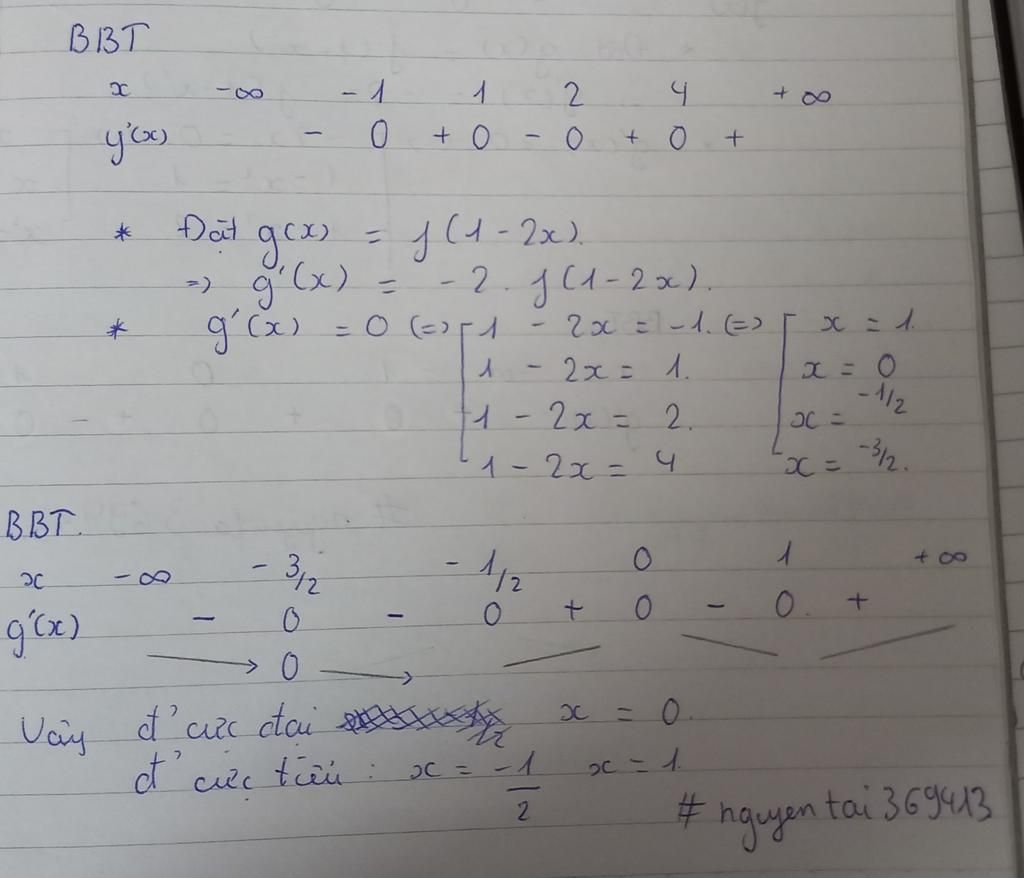 BBT
x -∞ -1 1 2 4 +∞
y'(x) - 0 + 0 - 0 + 0 +
* Đặt g(x) = f(1-2x).
=> g'(x) = -2. f(1-2x).
* g'(x) = 0 (=> [ 1 - 2x = -1. (=> [ x = 1.
1 - 2x = 1. x = 0
1 - 2x = 2. x = -1/2
1 - 2x = 4 x = -3/2.
BBT.
x -∞ -3/2 -1/2 0 1 +∞
g'(x) - 0 - 0 + 0 - 0. +
0
Vậy đ' cực đại x = 0.
đ' cực tiểu : x = -1/2 x = 1.
# nguyen tai 369413